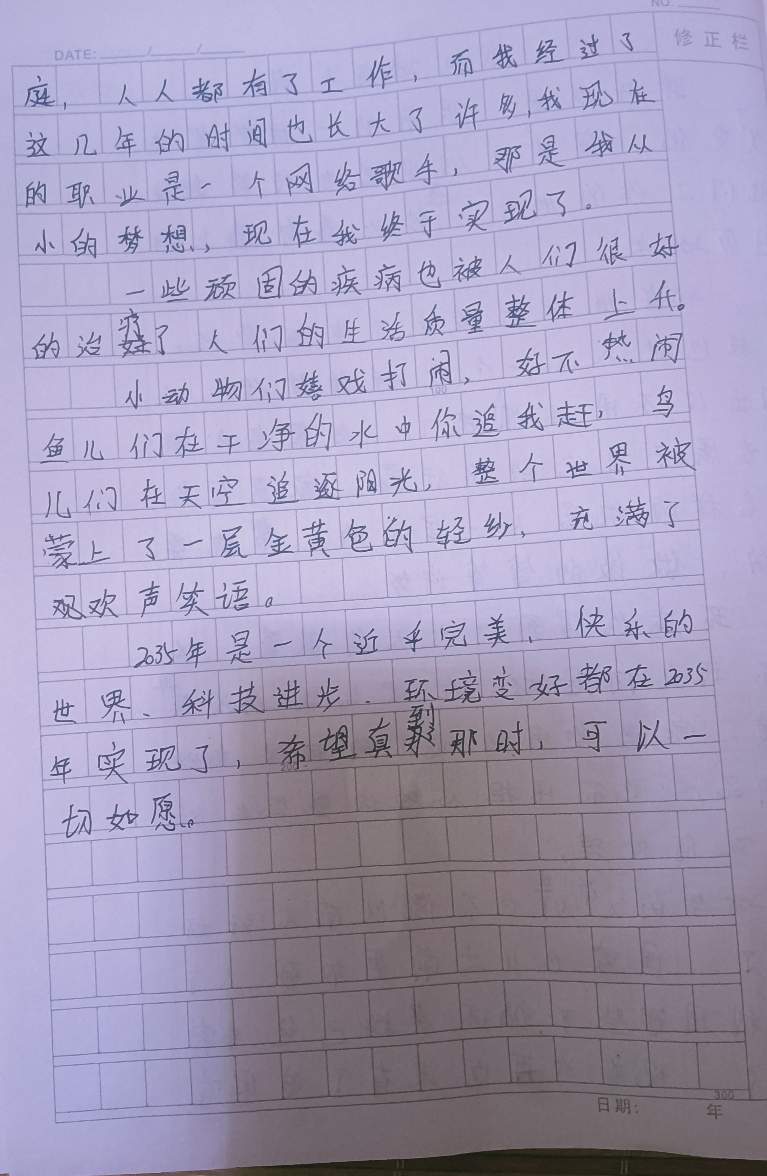 NO.
DATE: / /
修正栏
庭，人人都有了工作，而我经过了
这几年的时间也长大了许多，我现在
的职业是一个网络歌手，那是我从
小的梦想，现在我终于实现了。
一些顽固的疾病也被人们很好
的治疗了人们的生活质量整体上升。
小动物们嬉戏打闹，好不热闹
鱼儿们在干净的水中你追我赶，鸟
儿们在天空追逐阳光，整个世界被
蒙上了一层金黄色的轻纱，充满了
观欢声笑语。
2035年是一个近乎完美、快乐的
世界、科技进步、环境变好都在2035
年实现了，希望真到那时，可以一
切如愿。
300
日期： 年